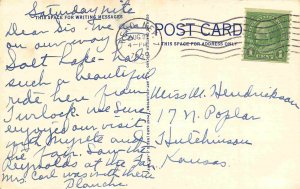 Saturday nite
THIS SPACE FOR WRITING MESSAGES
POST CARD
THIS SPACE FOR ADDRESS ONLY
Dear Sis. We are
on our way to
Salt Lake. had
such a beautiful
ride here from
Turlock. we sure
enjoyed our visit
with Myrtle and
the Saw the
Reynolds at the Fair
Mrs. Carl was with them
Blanche
AUG
4 PM
1 CENT 1
Miss M. Hendrickson
17 N. Poplar
Hutchinson
Kansas